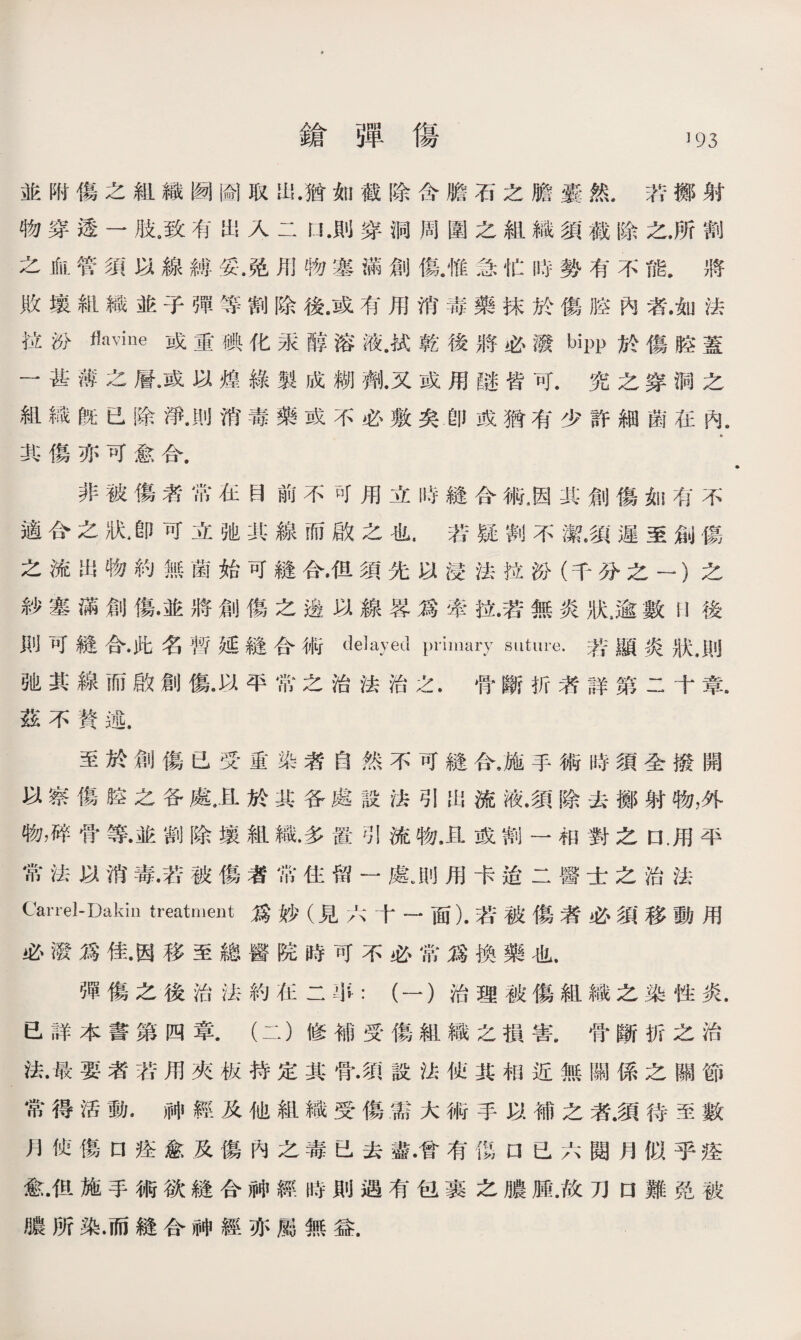 鎗彈傷 193
並附傷之組織囫圇取出.猶如截除含膽石之膽囊然. 若擲射
物穿透一肢.致有出入二口.則穿洞周圍之組織須截除之.所割
之血管須以線縛妥.免用物塞滿創傷.惟急忙時勢有不能. 將
敗壞組織並子彈等割除後.或有用消毒藥抹於傷腔內者.如法
拉汾 flavine 或重碘化汞醇溶液.拭乾後將必潑 bipp 於傷腔蓋
一甚薄之層.或以煌綠製成糊劑.又或用醚皆可. 究之穿洞之
組織旣已除淨.則消毒藥或不必敷矣.卽或猶有少許細菌在內.
其傷亦可愈合.
非被傷者常在目前不可用立時縫合術.因其創傷如有不
適合之狀.卽可立弛其線而啟之也. 若疑割不潔.須遲至創傷
之流出物約無菌始可縫合.但須先以浸法拉汾(千分之一)之
紗塞滿創傷.並將創傷之邊以線畧爲牽拉.若無炎狀.逾數日後
則可縫合.此名暫延縫合術 delayed primary suture. 若顯炎狀.則
弛其線而啟創傷.以平常之治法治之. 骨斷折者詳第二十章.
茲不贅述.
至於創傷已受重染者自然不可縫合.施手術時須全撥開
以察傷腔之各處.且於其各處設法引出流液.須除去擲射物,外
物,碎骨等.並割除壞組織.多置引流物.且或割一相對之口.用平
常法以消毒.若被傷者常住留一處.則用卡逌二醫士之治法
Carrel-Dakin treatment 爲妙(見六十一面).若被傷者必須移動用
必潑爲佳.因移至總醫院時可不必常爲換藥也.
彈傷之後治法約在二事: (一)治理被傷組織之染性炎.
已詳本書第四章. (二)修補受傷組織之損害. 骨斷折之治
法.最要者若用夾板持定其骨.須設法使其相近無關係之關節
常得活動. 神經及他組織受傷需大術手以補之者.須待至數
月使傷口痊愈及傷內之毒已去盡.曾有傷口已六閱月似乎痊
愈.但施手術欲縫合神經時則遇有包裹之膿腫.故刀口難免被
膿所染.而縫合神經亦屬無益.